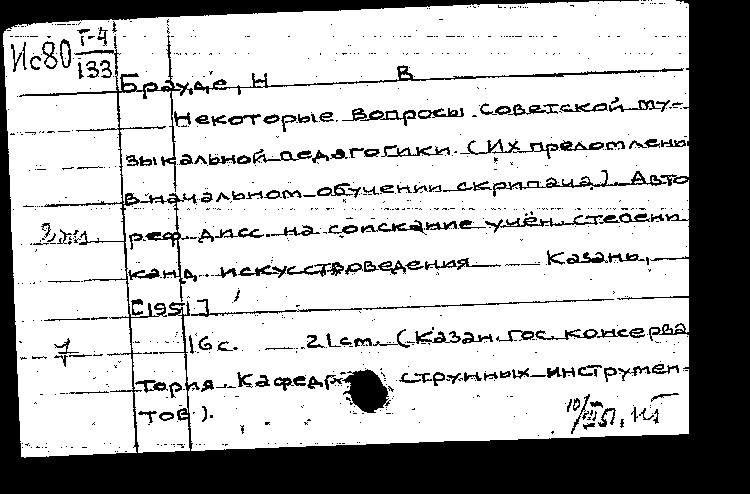 Ис80 Г-4
133
Брауде, Н В
Некоторые вопросы советской му-
зыкальной педагогики. (Их преломлени
в начальном обучении скрипача). Авто
реф. дисс. на соискание учён. степени
2 экз.
канд. искусствоведения Казань,
[1951]
16 с. 21 см. (Казан. гос. консерва
7
тория. Кафедра струнных инструмен-
тов).
10/VIII 51.